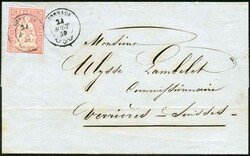 CORNAUX
21
AOUT
59
Monsieur
Ulysse Lambelet
Commissionnaire
Verrières = Suisses